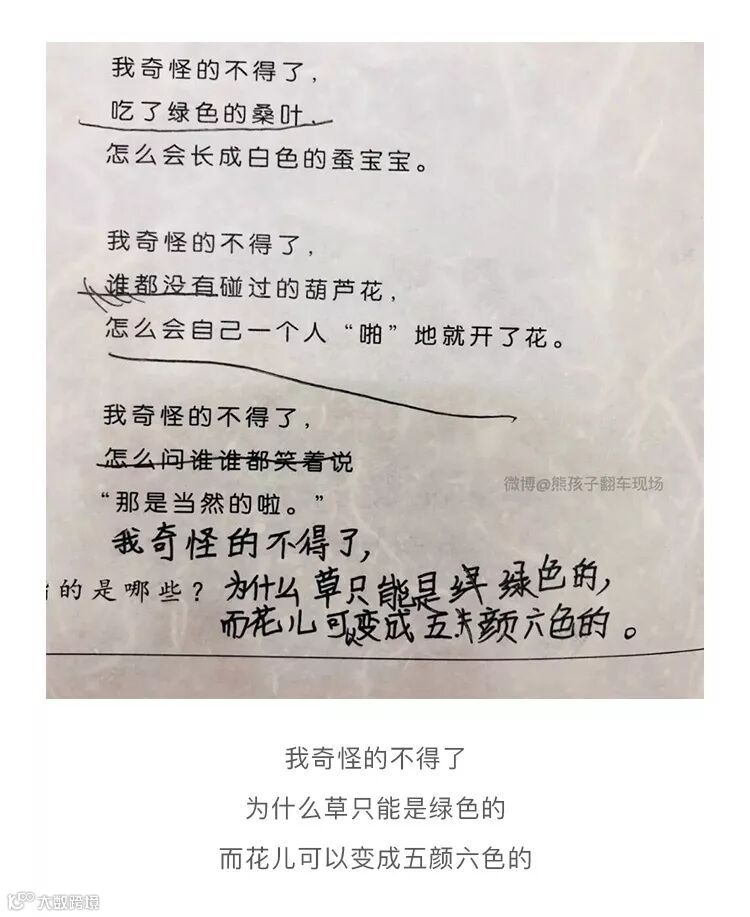 我奇怪的不得了，
吃了绿色的桑叶，
怎么会长成白色的蚕宝宝。
我奇怪的不得了，
谁都没有碰过的葫芦花，
怎么会自己一个人“啪”地就开了花。
我奇怪的不得了，
怎么问谁谁都笑着说
“那是当然的啦。”
微博@熊孩子翻车现场
我奇怪的不得了，
的是哪些？为什么草只能是绿色的，
而花儿可以变成五颜六色的。
我奇怪的不得了
为什么草只能是绿色的
而花儿可以变成五颜六色的
大数跨境